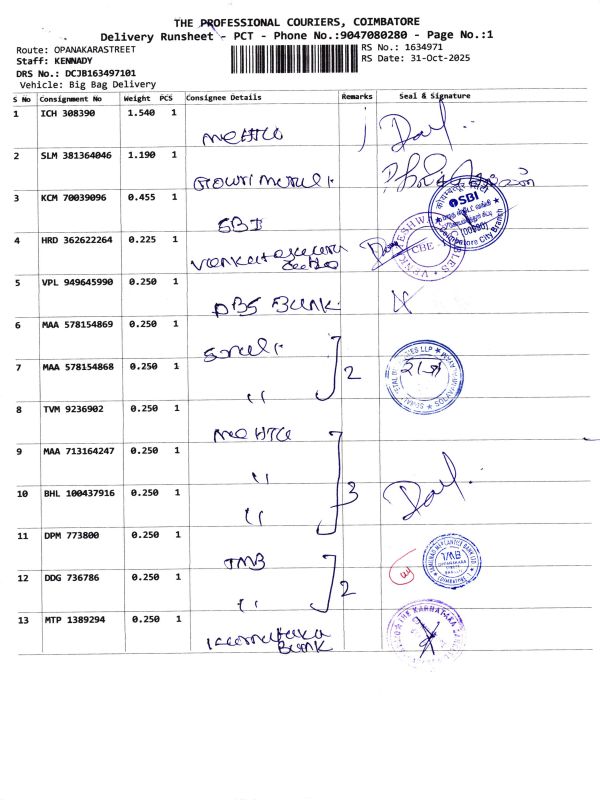 THE PROFESSIONAL COURIERS, COIMBATORE
Delivery Runsheet - PCT - Phone No.:9047080280 - Page No.:1
Route: OPANAKARASTREET
RS No.: 1634971
Staff: KENNADY
RS Date: 31-Oct-2025
DRS No.: DCJB163497101
Vehicle: Big Bag Delivery
S No Consignment No Weight PCS Consignee Details Remarks Seal & Signature
1 ICH 308390 1.540 1
2 SLM 381364046 1.190 1
3 KCM 70039096 0.455 1 SBI
SBI
(00990)
Coimbatore City Branch
4 HRD 362622264 0.225 1
CBE
5 VPL 949645990 0.250 1 DBS BUNK
6 MAA 578154869 0.250 1
7 MAA 578154868 0.250 1 " 2
8 TVM 9236902 0.250 1
9 MAA 713164247 0.250 1 "
10 BHL 100437916 0.250 1 " 3
11 DPM 773800 0.250 1 TMB
TAMILNAD MERCANTILE BANK LTD.
TMB
COIMBATORE
12 DDG 736786 0.250 1 " 2
13 MTP 1389294 0.250 1 Karnataka
BUNK
THE KARNATAKA